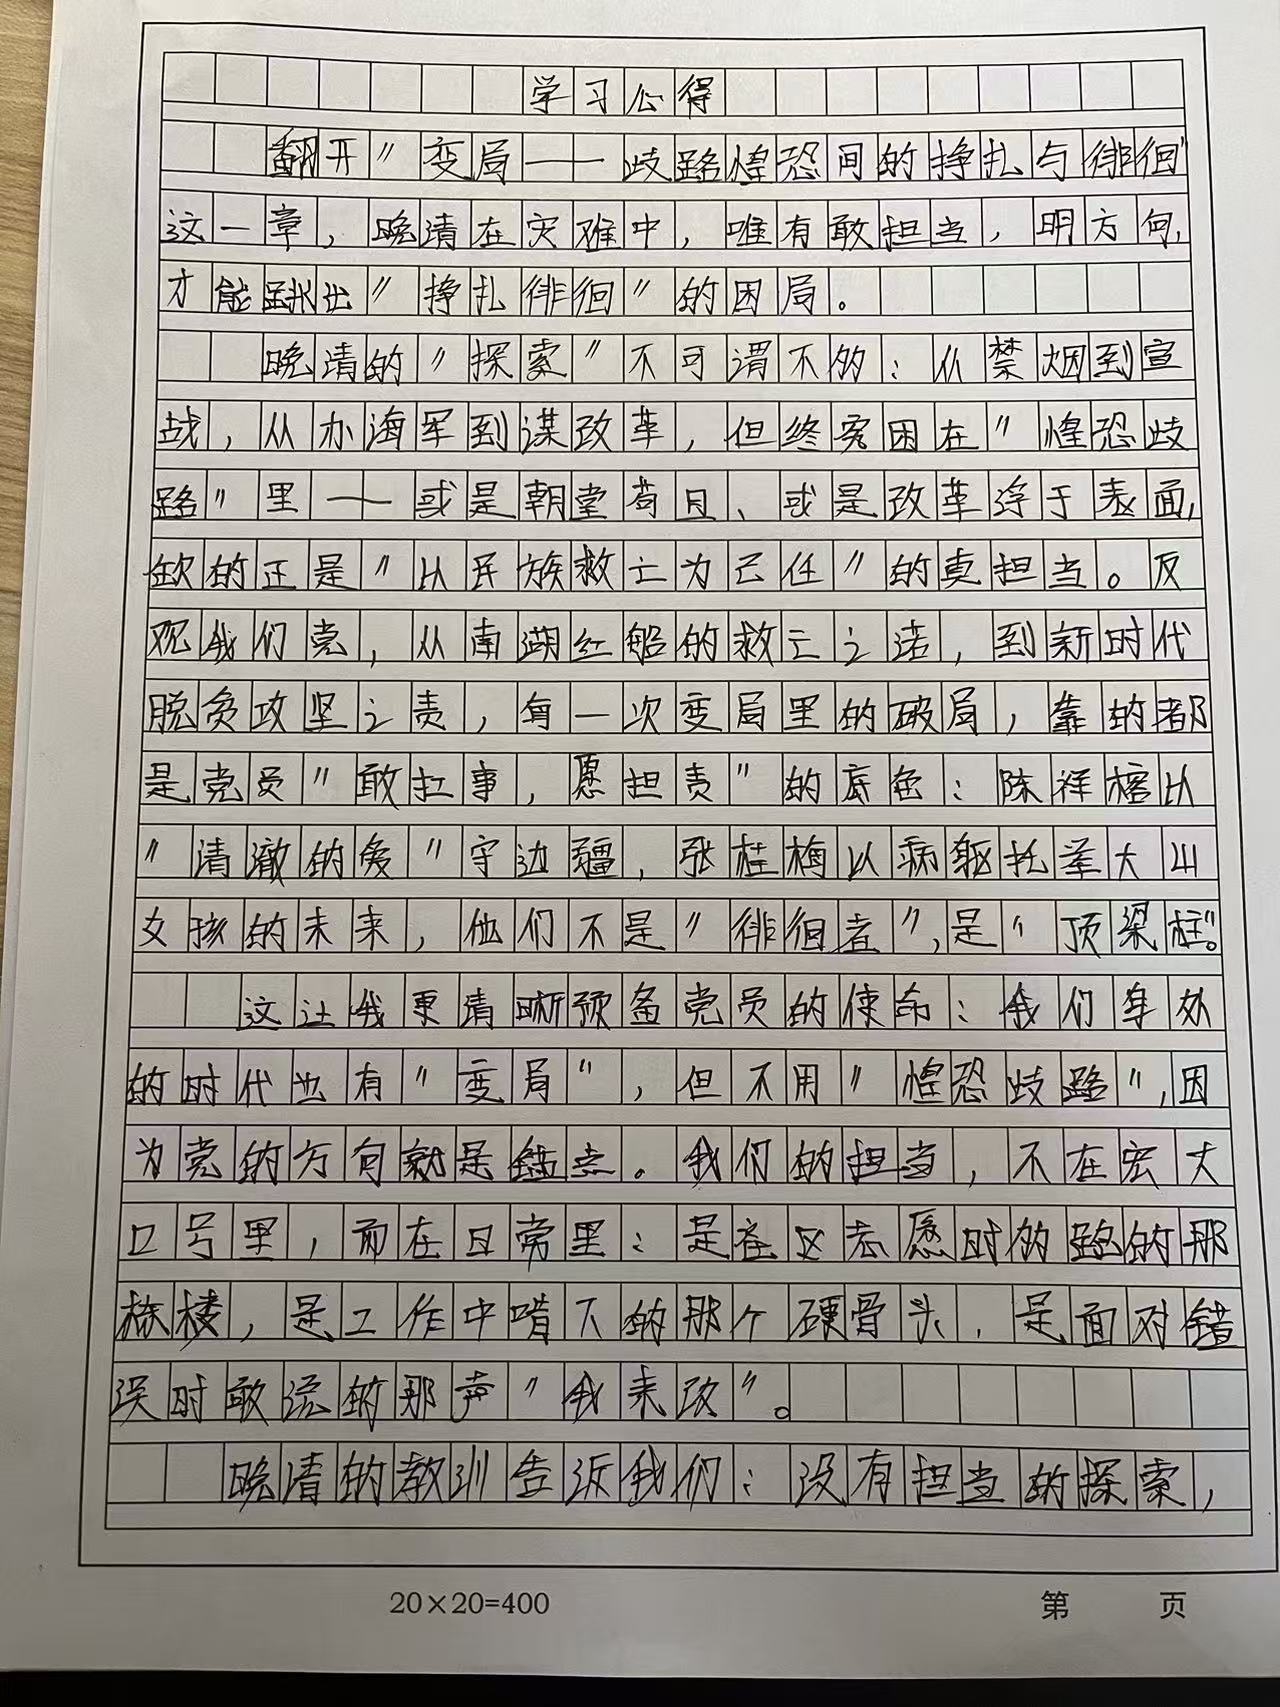 学习心得
翻开"变局——歧路惶恐间的挣扎与徘徊"
这一章,晚清在灾难中,唯有敢担当,明方向,
才能跳出"挣扎徘徊"的困局。
晚清的"探索"不可谓不多:从禁烟到宣
战,从办海军到谋改革,但终究困在"惶恐歧
路"里——或是朝堂苟且、或是改革浮于表面,
欠的正是"以民族救亡为己任"的真担当。反
观我们党,从南湖红船的救亡之诺,到新时代
脱贫攻坚之责,每一次变局里的破局,靠的都
是党员"敢扛事,愿担责"的底色:陈祥榕以
"清澈的爱"守边疆,张桂梅以病躯托举大山
女孩的未来,他们不是"徘徊者",是"顶梁柱"。
这让我更清晰预备党员的使命:我们身处
的时代也有"变局",但不用"惶恐歧路",因
为党的方向就是锚点。我们的担当,不在宏大
口号里,而在日常里:是社区志愿时多跑的那
栋楼,是工作中啃下的那个硬骨头,是面对错
误时敢说的那声"我来改"。
晚清的教训告诉我们:没有担当的探索,
20×20=400
第 页